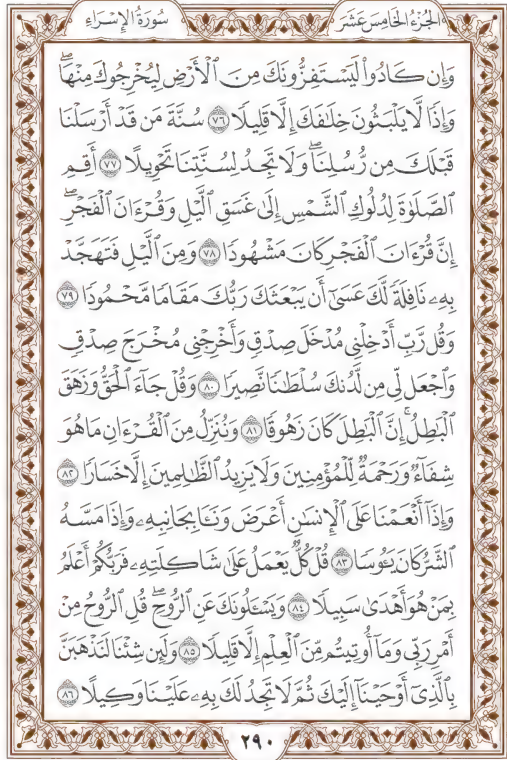 الجُزْءُ الخَامِسَ عَشَرَ
سُورَةُ الإِسْرَاءِ
وَإِن كَادُوا۟ لَيَسْتَفِزُّونَكَ مِنَ ٱلْأَرْضِ لِيُخْرِجُوكَ مِنْهَاۖ
وَإِذًا لَّا يَلْبَثُونَ خِلَـٰفَكَ إِلَّا قَلِيلًا ٧٦ سُنَّةَ مَن قَدْ أَرْسَلْنَا
قَبْلَكَ مِن رُّسُلِنَاۖ وَلَا تَجِدُ لِسُنَّتِنَا تَحْوِيلًا ٧٧ أَقِمِ
ٱلصَّلَوٰةَ لِدُلُوكِ ٱلشَّمْسِ إِلَىٰ غَسَقِ ٱلَّيْلِ وَقُرْءَانَ ٱلْفَجْرِۖ
إِنَّ قُرْءَانَ ٱلْفَجْرِ كَانَ مَشْهُودًا ٧٨ وَمِنَ ٱلَّيْلِ فَتَهَجَّدْ
بِهِۦ نَافِلَةً لَّكَ عَسَىٰٓ أَن يَبْعَثَكَ رَبُّكَ مَقَامًا مَّحْمُودًا ٧٩
وَقُل رَّبِّ أَدْخِلْنِى مُدْخَلَ صِدْقٍ وَأَخْرِجْنِى مُخْرَجَ صِدْقٍ
وَٱجْعَل لِّى مِن لَّدُنكَ سُلْطَـٰنًا نَّصِيرًا ٨٠ وَقُلْ جَآءَ ٱلْحَقُّ وَزَهَقَ
ٱلْبَـٰطِلُۚ إِنَّ ٱلْبَـٰطِلَ كَانَ زَهُوقًا ٨١ وَنُنَزِّلُ مِنَ ٱلْقُرْءَانِ مَا هُوَ
شِفَآءٌ وَرَحْمَةٌ لِّلْمُؤْمِنِينَ وَلَا يَزِيدُ ٱلظَّـٰلِمِينَ إِلَّا خَسَارًا ٨٢
وَإِذَآ أَنْعَمْنَا عَلَى ٱلْإِنسَـٰنِ أَعْرَضَ وَنَـَٔا بِجَانِبِهِۦ وَإِذَا مَسَّهُ
ٱلشَّرُّ كَانَ يَـُٔوسًا ٨٣ قُلْ كُلٌّ يَعْمَلُ عَلَىٰ شَاكِلَتِهِۦ فَرَبُّكُمْ أَعْلَمُ
بِمَنْ هُوَ أَهْدَىٰ سَبِيلًا ٨٤ وَيَسْـَٔلُونَكَ عَنِ ٱلرُّوحِۖ قُلِ ٱلرُّوحُ مِنْ
أَمْرِ رَبِّى وَمَآ أُوتِيتُم مِّنَ ٱلْعِلْمِ إِلَّا قَلِيلًا ٨٥ وَلَئِن شِئْنَا لَنَذْهَبَنَّ
بِٱلَّذِىٓ أَوْحَيْنَآ إِلَيْكَ ثُمَّ لَا تَجِدُ لَكَ بِهِۦ عَلَيْنَا وَكِيلًا ٨٦
٢٩٠